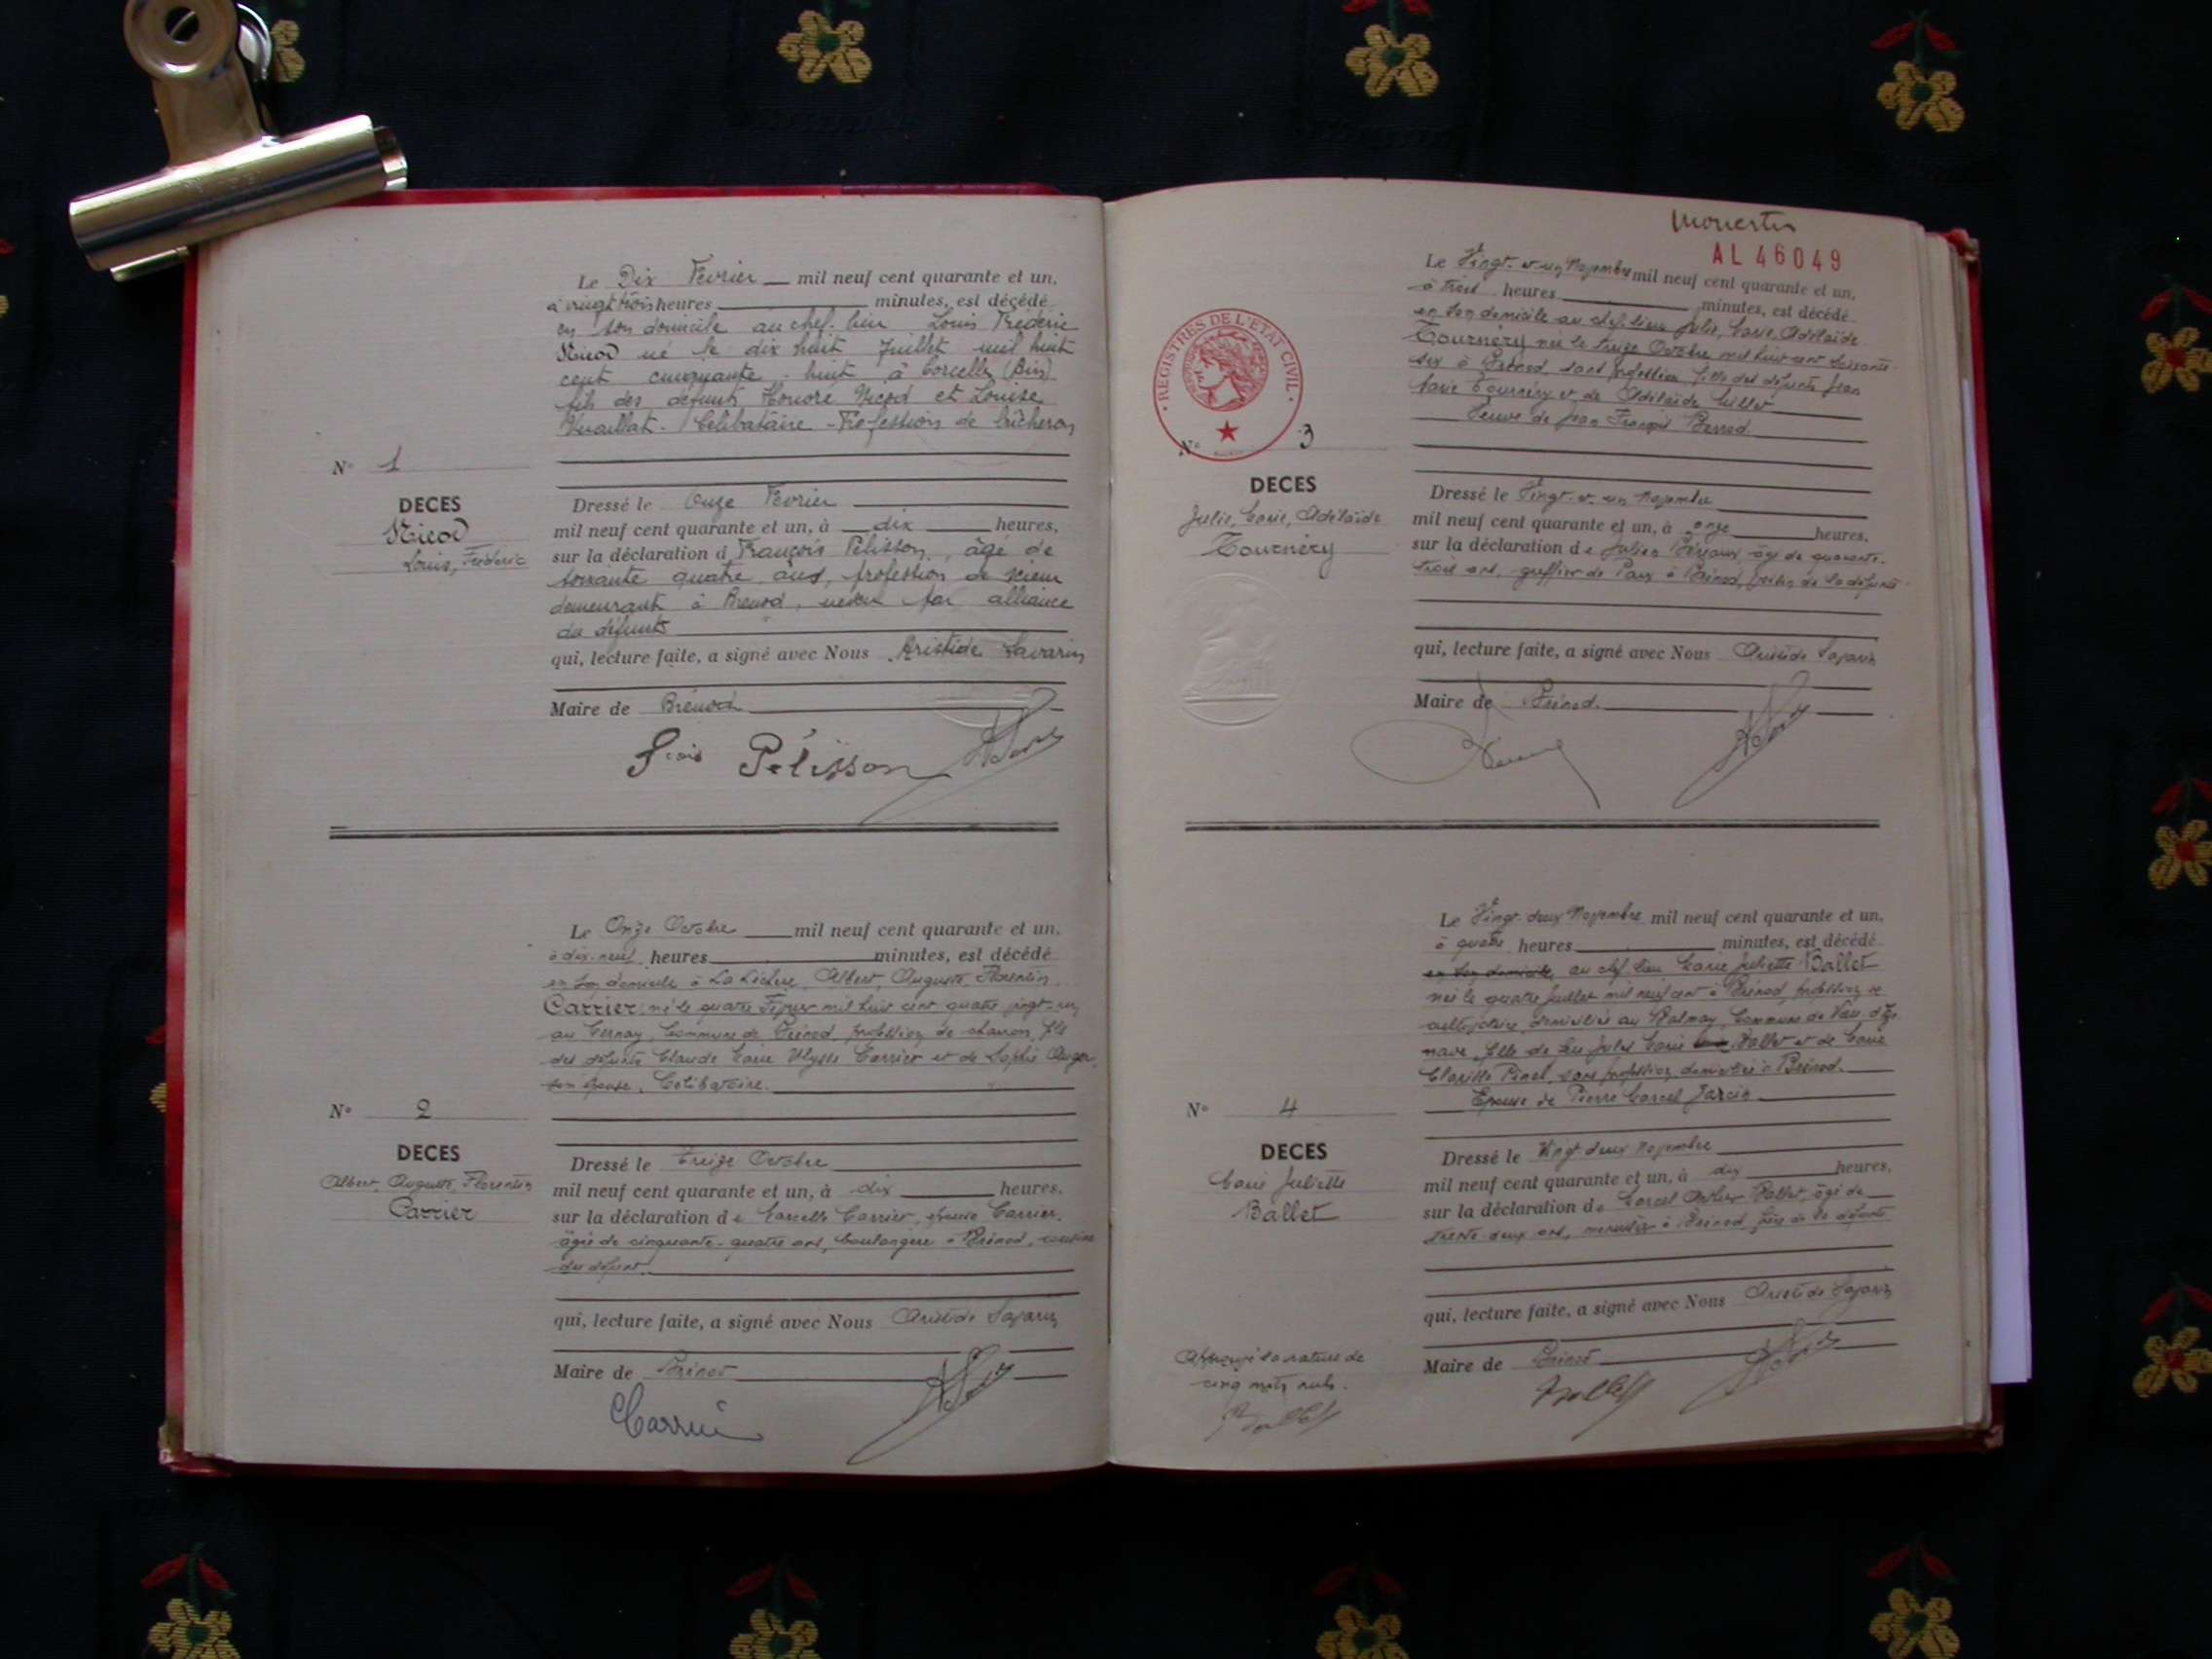 Le Dix Fevrier mil neuf cent quarante et un,
à vingt trois heures minutes, est décédé
en son domicile au chef-lieu Louis Frédéric
Nicod né le dix huit Juillet mil huit
cent cinquante-huit à Corcelles (Ain)
fils des défunts Honoré Nicod et Louise
Célibataire - Profession de bûcheron
N° 1
DECES
Nicod
Louis, Frédéric
Dressé le Onze Fevrier
mil neuf cent quarante et un, à dix heures,
sur la déclaration d François Pélisson, âgé de
soixante quatre ans, profession de scieur
demeurant à Brénod, neveu par alliance
du défunt
qui, lecture faite, a signé avec Nous Aristide Savarin
Maire de Brénod
Fçois Pélisson
Le Onze Octobre mil neuf cent quarante et un,
à dix-neuf heures minutes, est décédé
en son domicile à La Léchère, Albert, Auguste, Florentin
Carrier né le quatre Février mil huit cent quatre vingt-un
au Cernay, Commune de Brénod, profession de charron, fils
des défunts Claude Marie Ulysse Carrier et de Sophie Auger
son épouse. Célibataire.
N° 2
DECES
Albert, Auguste, Florentin
Carrier
Dressé le treize Octobre
mil neuf cent quarante et un, à dix heures,
sur la déclaration de Marcelle Carrier, épouse Carrier,
âgée de cinquante-quatre ans, boulangère à Brénod, cousine
du défunt.
qui, lecture faite, a signé avec Nous Aristide Savarin
Maire de Brénod
Carrier
Monestier
AL 46049
Le Vingt-et-un Novembre mil neuf cent quarante et un,
à trois heures minutes, est décédé
en son domicile au chef-lieu Julie, Marie, Adélaïde
Tournéry née le treize Octobre mil huit cent soixante-
six à Brénod sans profession fille des défunts Jean
Marie Tournéry et de Adélaïde
Veuve de Jean François Berrod
REGISTRES DE L'ETAT CIVIL
N° 3
DECES
Julie, Marie, Adélaïde
Tournéry
Dressé le Vingt-et-un Novembre
mil neuf cent quarante et un, à onze heures,
sur la déclaration de Julien âgé de quarante-
trois ans, greffier de Paix à Brénod, de la défunte
qui, lecture faite, a signé avec Nous Aristide Savarin
Maire de Brénod
Le Vingt-deux Novembre mil neuf cent quarante et un,
à quatre heures minutes, est décédé
en son domicile au chef lieu Marie Juliette Ballet
née le quatre Juillet mil neuf cent à Brénod, profession de
cultivatrice, domiciliée au Balmay, Commune de Vieu-d'Ize-
nave, fille de feu Jules Marie Ballet et de Marie
Clarisse Pinel, sans profession, domiciliée à Brénod.
Epouse de Pierre Marcel Jarcin
N° 4
DECES
Marie Juliette
Ballet
Dressé le Vingt deux Novembre
mil neuf cent quarante et un, à dix heures,
sur la déclaration de Marcel Arthur Ballet, âgé de
trente deux ans, menuisier à Brénod frère de la défunte
qui, lecture faite, a signé avec Nous Aristide Savarin
Approuvé la rature de
cinq mots nuls.
Maire de Brénod
Ballet